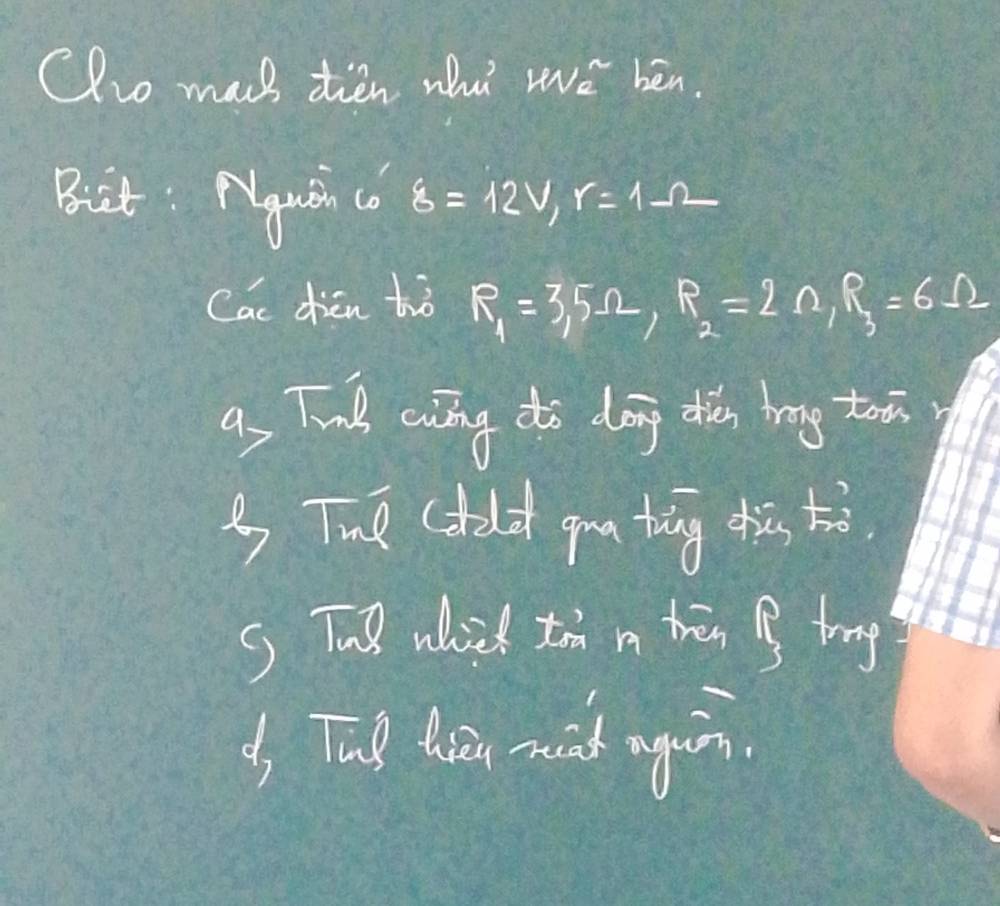 Cho mạch điện như hvẽ bên.
Biết: Nguồn có ε = 12V, r = 1Ω
Các điện trở R₁ = 3,5Ω, R₂ = 2Ω, R₃ = 6Ω
a, Tính cường độ dòng điện trong toàn
b, Tính Cđdđ qua từng điện trở.
c, Tính nhiệt toả ra trên R₃ trong
d, Tính hiệu suất nguồn.